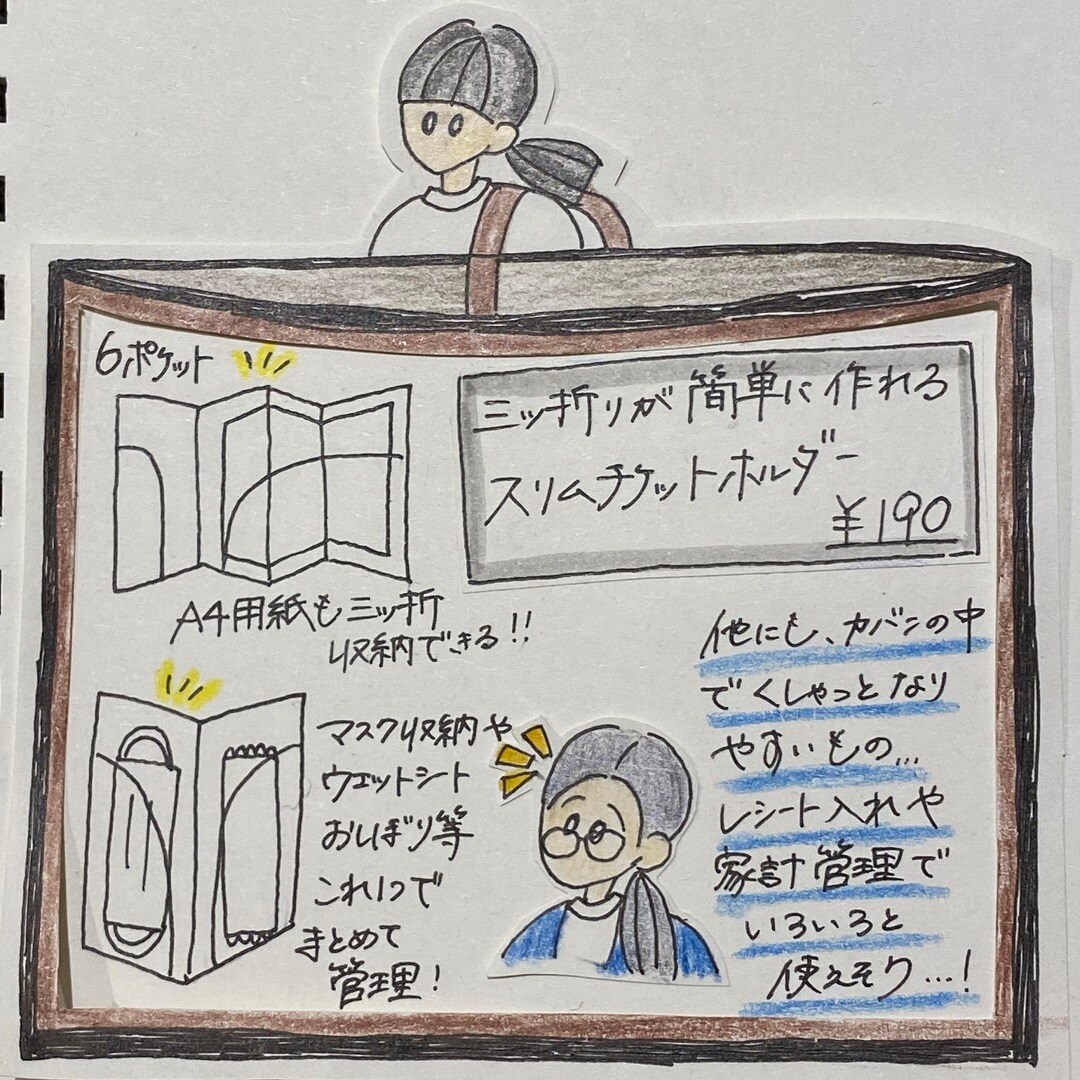 6ポケット
三ッ折りが簡単に作れる
スリムチケットホルダー
¥190
A4用紙も三ッ折
収納できる!!
マスク収納や
ウェットシート
おしぼり等
これ1つで
まとめて
管理!
他にも、カバンの中
でくしゃっとなり
やすいもの…
レシート入れや
家計管理で
いろいろと
使えそり…!